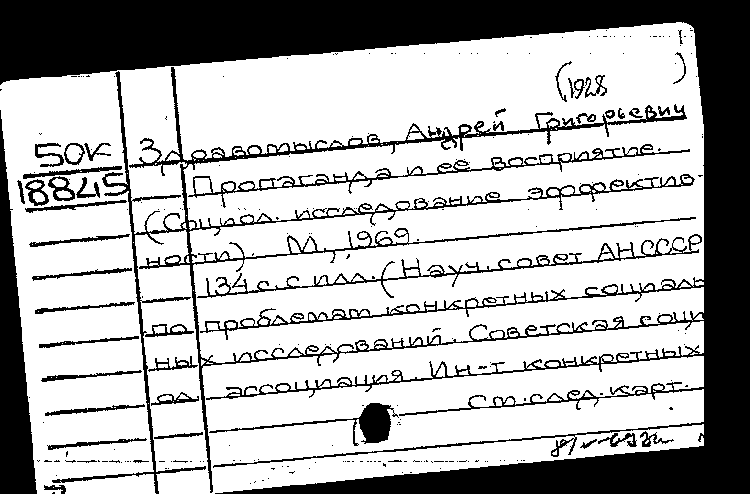 (1928 )
50К Здравомыслов, Андрей Григорьевич
18845 Пропаганда и её восприятие.
(Социол. исследование эффектив-
ности). М., 1969.
134 с. с илл. (Науч. совет АН СССР
по проблемам конкретных социаль
ных исследований. Советская соци
ол. ассоциация. Ин-т конкретных
См. след. карт.